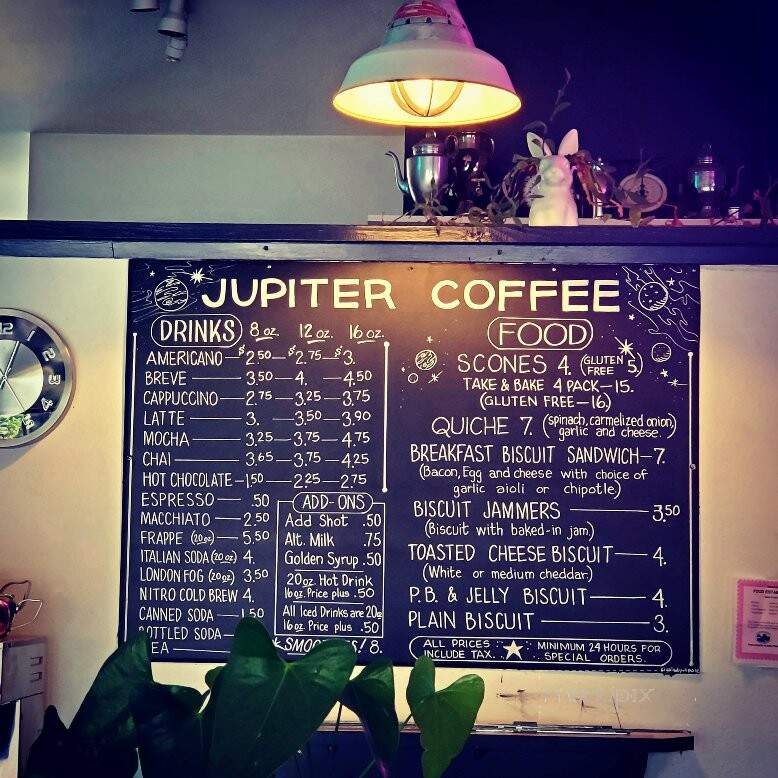 JUPITER COFFEE
DRINKS 8 oz. 12 oz. 16 oz.
AMERICANO $2.50 $2.75 $3.
BREVE 3.50 4. 4.50
CAPPUCCINO 2.75 3.25 3.75
LATTE 3. 3.50 3.90
MOCHA 3.25 3.75 4.75
CHAI 3.65 3.75 4.25
HOT CHOCOLATE 1.50 2.25 2.75
ESPRESSO .50
MACCHIATO 2.50
FRAPPE (20oz) 5.50
ITALIAN SODA (20oz) 4.
LONDON FOG (20oz) 3.50
NITRO COLD BREW 4.
CANNED SODA 1.50
BOTTLED SODA
TEA
ADD-ONS
Add Shot .50
Alt. Milk .75
Golden Syrup .50
20oz Hot Drink
16oz. Price plus .50
All Iced Drinks are 20oz
16oz. Price plus .50
8.
FOOD
SCONES 4. (GLUTEN FREE 5.)
TAKE & BAKE 4 PACK—15.
(GLUTEN FREE—16.)
QUICHE 7. (spinach, carmelized onion,
garlic and cheese.)
BREAKFAST BISCUIT SANDWICH—7.
(Bacon, Egg and cheese with choice of
garlic aioli or chipotle)
BISCUIT JAMMERS 3.50
(Biscuit with baked-in jam)
TOASTED CHEESE BISCUIT 4.
(White or medium cheddar)
P.B. & JELLY BISCUIT 4.
PLAIN BISCUIT 3.
ALL PRICES
INCLUDE TAX.
MINIMUM 24 HOURS FOR
SPECIAL ORDERS.